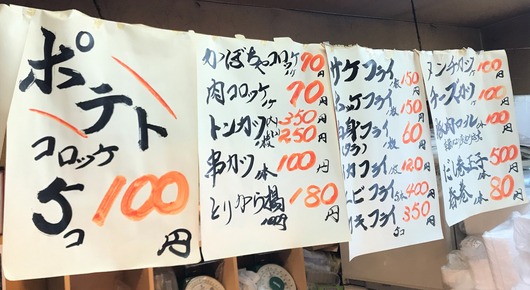 ポテト
コロッケ
5コ 100円
かぼちゃコロッケ 70円
肉コロッケ 70円
トンカツ 350
250円
串カツ 1本 100円
とりから揚 180円
サケフライ 1枚 150円
フライ 150円
白身フライ 1枚 60円
カフライ 120円
ビフライ 400円
キフライ 5コ 350円
メンチカツ 100円
チーズ 100円
肉ロール 100円
だし巻玉子 500円
春巻 1本 80円